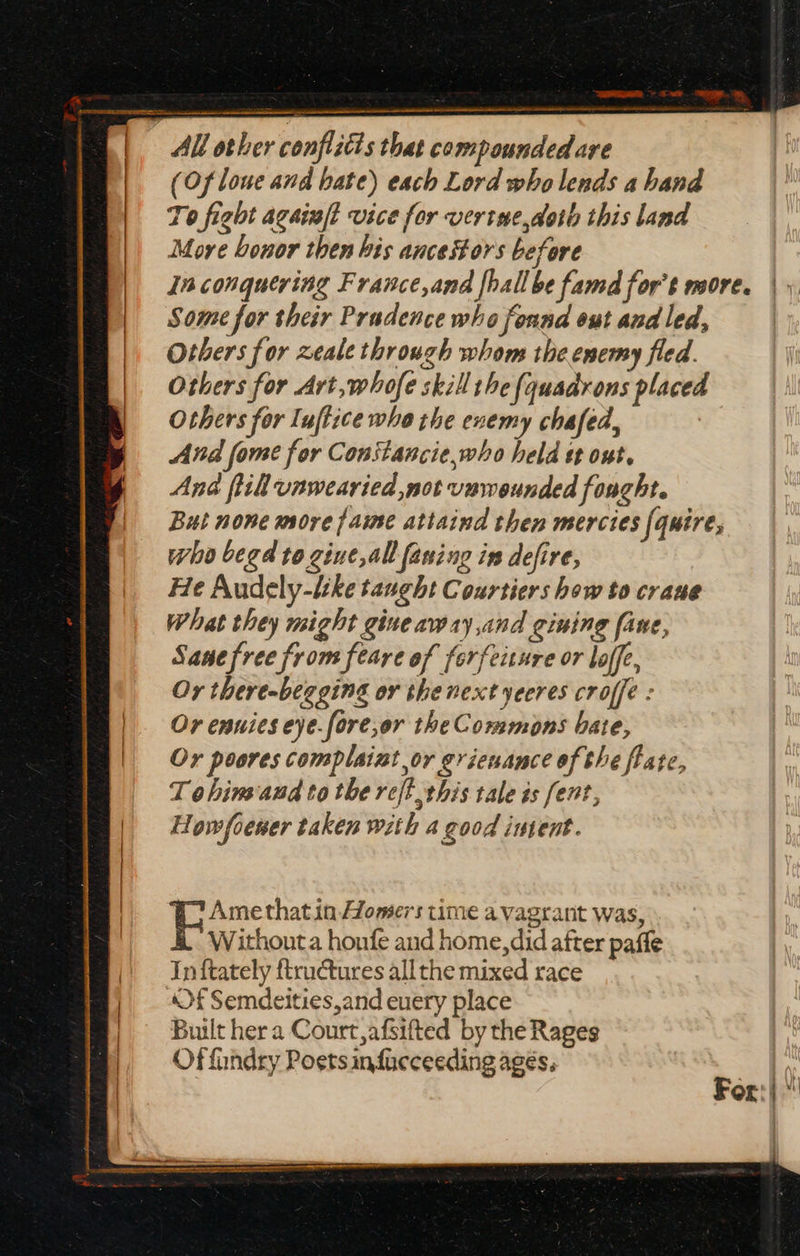 All other conflicts that compounded are
(Of loue and hate) each Lord who lends a hand
To fight againſt vice for vertue,doth this land
More honor then his anceſtors before
In conquering France,and ſhall be famd for't more.
Some for their Prudence who fonnd out and led,
Others for zeale through whom the enemy fled.
Others for Art,whoſe skill the ſquadrons placed
Others for Iuſtice who the enemy chaſed,
And ſome for Conſtancie,who held it out.
And ſtill vnwearied,not vnwounded fought.
But none more fame attaind then mercies ſquire,
who begd to giue,all ſauing in deſire,
He Audely-like taught Courtiers how to craue
What they might giue away,and giuing ſaue,
Saue free from feare of forfeiture or loſſe,
Or there-begging or the next yeeres croſſe :
Or enuies eye-ſore,or the Commons hate,
Or poores complaint,or grieuance of the ſtate,
To him and to the reſt,this tale is ſent,
Howſoeuer taken with a good intent.
FAme that in Homers time a vagrant was,
Without a houſe and home,did after paſſe
In ſtately ſtructures all the mixed race
Of Semdeities,and euery place
Built her a Court,aſsiſted by the Rages
Of ſundry Poets in ſucceeding ages,
For: